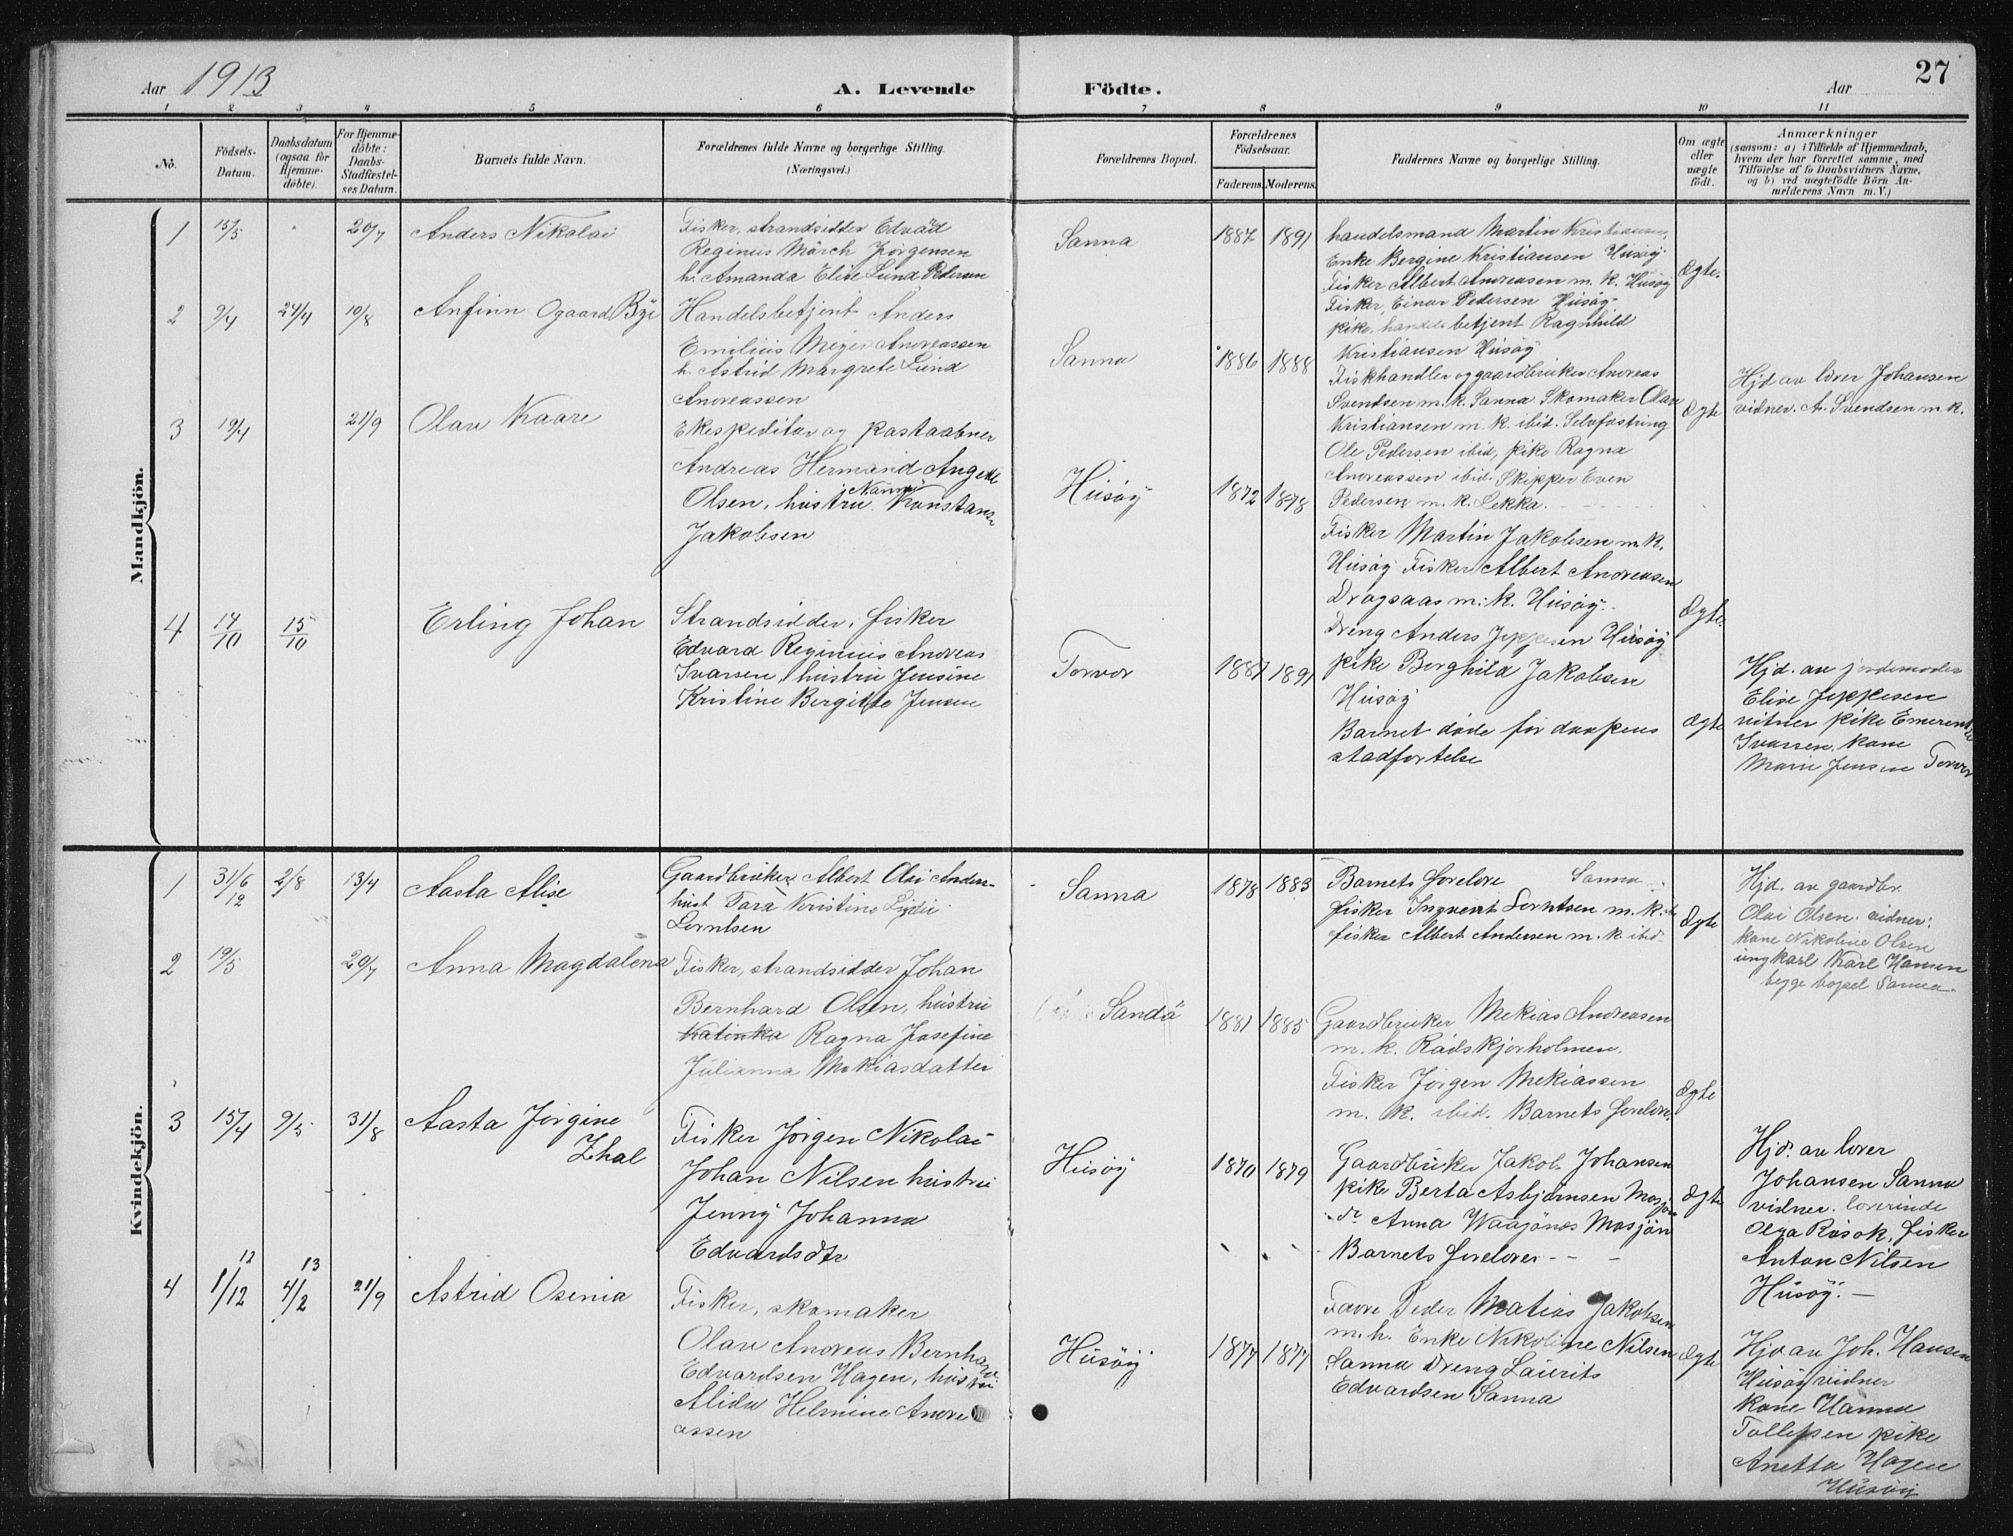 27
Aar 1913
A. Levende Födte.
Aar
1 2 3 4 5 6 7 8 9 10 11
No.
Födsels-Datum.
Daabsdatum (ogsaa for Hjemme-döbte).
For Hjemme-döbte: Daabs-Stadfæstel-ses Datum.
Barnets fulde Navn.
Forældrenes fulde Navne og borgerlige Stilling.
(Næringsvei.)
Forældrenes Bopæl.
Forældrenes Födselsaar.
Faderens. Moderens.
Faddernes Navne og borgerlige Stilling.
Om ægte eller uægte födt.
Anmærkninger
(saasom: a) i Tilfælde af Hjemmedaab,
hvem der har forrettet samme, med
Tilföielse af to Daabsvidners Navne,
og b) ved uægtefödte Börn An-
melderens Navn m. V.)
Mandkjön.
1 15/5 20/7 Anders Nikolai
Fisker, strandsidder Edvard
Reginus Mörch Jörgensen
h. Amanda Elise Lund Pedersen
Sanna 1887 1891
handelsmand Martin Kristiansen,
Enke Bergine Kristiansen Husöy
Fisker Albert Andreasen m. k. Husöy
Fisker, Einar Pedersen Husöy
pike, handelsbetjent Ragnhild
Kristiansen Husöy
Ægte.
2 9/4 24/4 10/8 Anfinn Ogaard Bye
Handelsbetjent Anders
Emilius Meyer Andreassen
h. Astrid Margrete Lund
Andreassen
Sanna 1886 1888
Fiskhandler og gaardbruker Andreas
Svendsen m. k. Sanna Skomaker Olav
Kristiansen m. k. ibid. Selvfostring
Ole Pedersen ibid, pike Ragna
Andreassen ibid. Skipper Even
Pedersen m. k. Lekka.
Ægte
Hjd av lærer Johansen
vidner. A. Svendsen m. k.
3 19/4 21/9 Olav Kaare
Ekspeditör og postaabner
Andreas Hermand Angell
Olsen, hustru Nanna Konstanse
Jakobsen
Husöy 1872 1878
Fisker Martin Jakobsen m. k.
Husöy Fisker Albert Andreasen
Dragsaas m. k. Husöy.
Dreng Anders Jeppesen Husöy
pike Borghild Jakobsen
Husöy
Ægte.
4 14/10 15/10 Erling Johan
Strandsidder, fisker
Edvard Reginius Andreas
Ivarsen, hustru Jensine
Kristine Bergitte Jensen
Torvær 1887 1891
Barnet döde för daapens
stadfestelse
Ægte
Hjd. av jordemoder
Elise Jeppesen
vitner pike Emerentse
Ivarsen, kone
Marie Jensen Torvær
Kvindekjön.
1 31/12 6 2/8 13/4 Aasta Alise
Gaardbruker Albert Olai Ander-
hust Tara Kristine Lydia
Lorntsen
Sanna 1878 1883
Barnets forelore Sanna
fisker Ingvert Lorntsen m. k. ibi
fisker Albert Andersen m. k. ibid
Ægte
Hjd. av gaardbr.
Olai Olsen. vidner:
kone Nikoline Olsen
ungkarl Karl Hansen
begge bopel Sanna.
2 19/5 20/7 Anna Magdalena
Fisker, strandsidder Johan
Bernhard Olsen, hustru
Katinka Ragna Josefine
Julianna Mekiasdatter
Sandö 1881 1885
Gaardbruker Mekias Andreasen
m. k. Rödskjærholmen.
Fisker Jörgen Mekiassen
m. k. ibid. Barnets forelore.
Ægte
3 15/4 9/5 31/8 Aasta Jörgine
Thal
Fisker Jörgen Nikolai
Johan Nilsen hustru
Jenny Johanna
Edvardsdtr
Husöy 1870 1879
Gaardbruker Jakob Johansen
pike Berta Asbjörnsen Mosjön
do Anna Waajönes Mosjön
Barnets forelore
Ægte
Hjd. av lærer
Johansen Sanna
vidner. lærerinde
Olga Rösok, fisker
Anton Nilsen
Husöy.
4 1/12 12 4/2 13 21/9 Astrid Osenia
Fisker, skomaker
Olav Andreas Bernhard
Edvardsen Hagen, hustru
Alida Helmine Andre
assen
Husöy 1877 1877
Peder Matias Jakobsen
m. h. Enke Nikoline Nilsen
Sanna Dreng Laurits
Edvardsen Sanna
Ægte
Hjd av Joh. Hansen
Husöy vidner
kone Hanna
Tollefsen pike
Anetta Hagen
Husöy